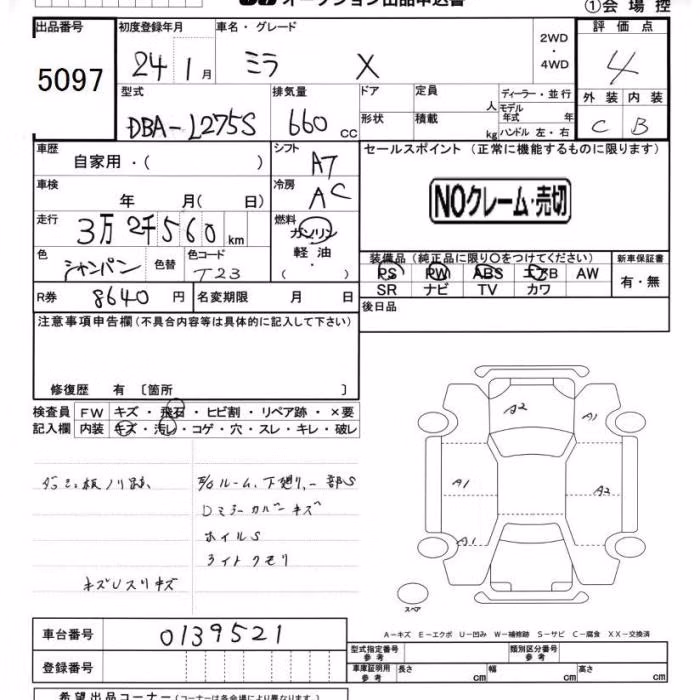 オークション出品申込書
①会場控
出品番号 初度登録年月 車名・グレード 評価点
5097
24 1月 ミラ X 2WD・4WD 4
型式 排気量 ドア 定員 人 ディーラー・並行 外装 内装
モデル年式 年
DBA-L275S 660cc 形状 積載 kg ハンドル 左・右 C B
車歴 シフト セールスポイント (正常に機能するものに限ります)
自家用・( ) AT
車検 冷房
年 月( 日) AC NOクレーム・売切
走行 燃料
3万2千560km ガソリン
軽油
・
( )
色 色替 色コード 装備品 (純正品に限り○をつけてください) 新車保証書
シャンパン T23 PS PW ABS エアB AW 有・無
SR ナビ TV カワ
R券 8640円 名変期限 月 日 後日品
注意事項申告欄 (不具合内容等は具体的に記入して下さい)
修復歴 有 〔箇所 〕
検査員 FW キズ・飛石・ヒビ割・リペア跡・×要
記入欄 内装 キズ・汚れ・コゲ・穴・スレ・キレ・破レ
A2 A1
ダッシュ板ノリ跡 F/Gルーム、下廻り一部S
Dミラーカバーキズ A1 A2
ホイルS A1
ライトクモリ
キズUスリキズ
スペア
車台番号 0139521
A-キズ E-エクボ U-凹み W-補修跡 S-サビ C-腐食 XX-交換済
登録番号 型式指定番号 参考 類別区分番号 参考
車庫証明用 参考 長さ cm 幅 cm 高さ cm
希望出品コーナー (コーナーは各会場により異なります。)